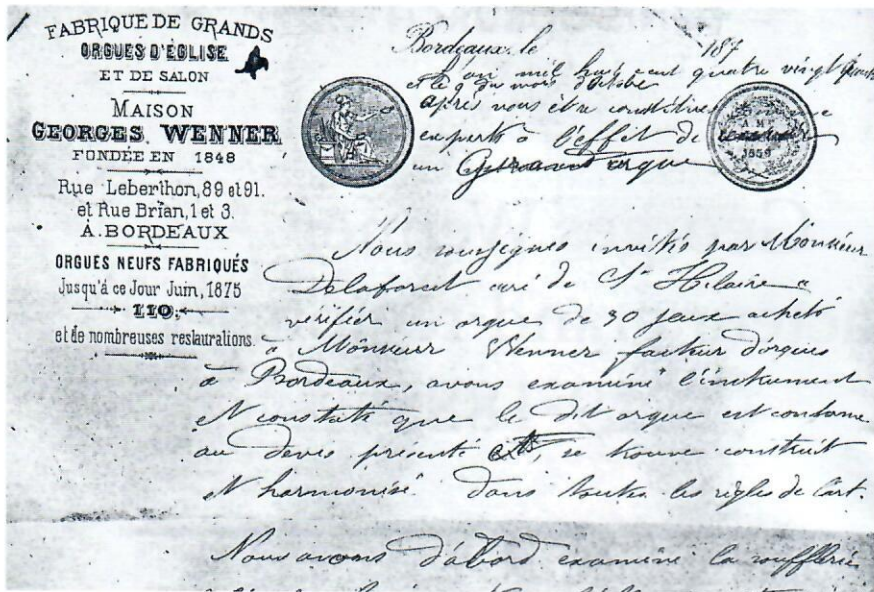 FABRIQUE DE GRANDS
ORGUES D'ÉGLISE
ET DE SALON
MAISON
GEORGES WENNER
FONDÉE EN 1848
Rue Leberthon, 89 et 91.
et Rue Brian, 1 et 3.
À BORDEAUX
ORGUES NEUFS FABRIQUÉS
Jusqu'à ce Jour Juin, 1875
110,
et de nombreuses restaurations.
Bordeaux, le 187
L'an mil huit cent quatre vingt
et le 9 du mois d'octobre
après nous être constitués
experts à l'effet de
un orgue
1859
Nous soussignés invités par Monsieur
Delaforcet curé de St Hilaire a
vérifier un orgue de 30 jeux acheté
à Monsieur Wenner facteur d'orgues
à Bordeaux, avons examiné l'instrument
et constaté que le dit orgue est conforme
au devis présenté se trouve construit
et harmonisé dans toutes les règles de l'art.
Nous avons d'abord examiné la soufflerie